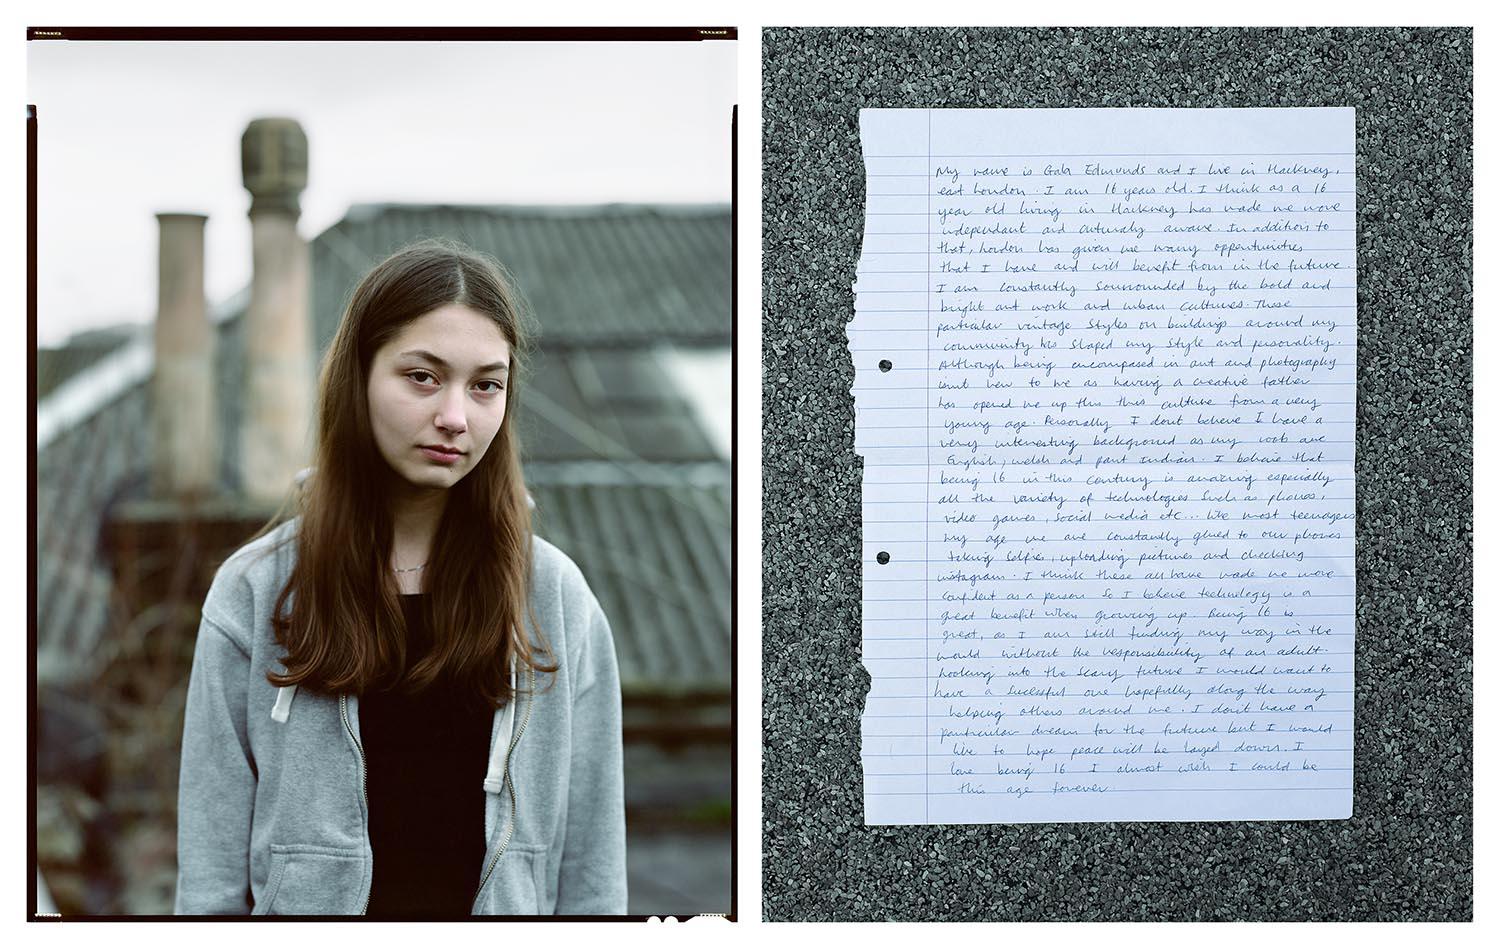 My name is Gala Edmunds and I live in Hackney,
east London. I am 16 years old. I think as a 16
year old living in Hackney has made me more
independant and culturaly aware. In addition to
that, London has given me many oppertunities
that I have and will benefit from in the future.
I am constantly sourrounded by the bold and
bright art work and urban cultures. Those
particular vintage styles on buildings around my
community has shaped my style and personality.
Although being encompased in art and photography
isnt new to me as having a creative father
has opened me up this this culture from a very
young age. Personally I dont believe I have a
very interesting background as my roots are
English, welsh and part Indian. I believe that
being 16 in this century is amazing especially
all the variety of technologies such as phones,
video games, social media etc... like most teenagers
my age we are constantly glued to our phones
taking selfies, uploading pictures and checking
instagram. I think these all have made me more
confident as a person so I believe technology is a
great benefit when growing up. Being 16 is
great, as I am still finding my way in the
world without the responsibility of an adult.
Looking into the scary future I would want to
have a sucessful one hopefully along the way
helping others around me. I don't have a
particular dream for the future but I would
like to hope peace will be layed down. I
love being 16 I almost wish I could be
this age forever.